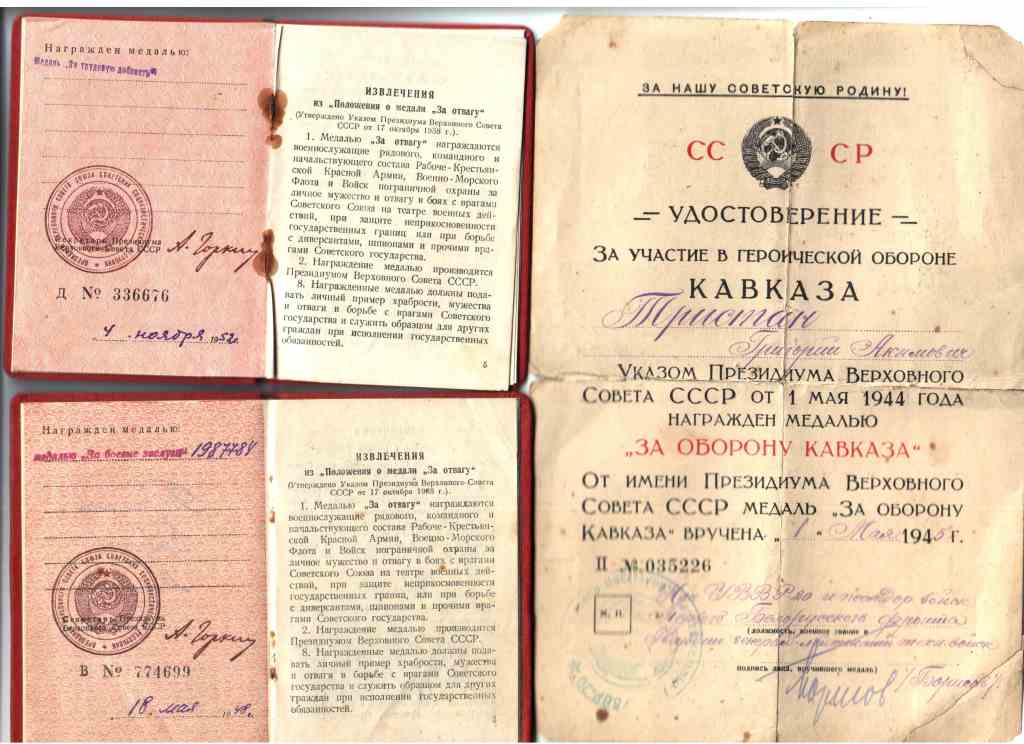 Награжден медалью:
Медаль „За трудовую доблесть“
Секретарь Президиума
Верховного Совета СССР
А. Горкин
Д № 336676
4 ноября 1952 г.
ИЗВЛЕЧЕНИЯ
из „Положения о медали „За отвагу“
(Утверждено Указом Президиума Верховного Совета
СССР от 17 октября 1938 г.).
1. Медалью „За отвагу“ награждаются
военнослужащие рядового, командного и
начальствующего состава Рабоче-Крестьян-
ской Красной Армии, Военно-Морского
Флота и Войск пограничной охраны за
личное мужество и отвагу в боях с врагами
Советского Союза на театре военных дей-
ствий, при защите неприкосновенности
государственных границ или при борьбе
с диверсантами, шпионами и прочими вра-
гами Советского государства.
2. Награждение медалью производится
Президиумом Верховного Совета СССР.
8. Награжденные медалью должны пода-
вать личный пример храбрости, мужества
и отваги в борьбе с врагами Советского
государства и служить образцом для других
граждан при исполнении государственных
обязанностей.
5
Награжден медалью:
медалью „За боевые заслуги“ 1987784
Секретарь Президиума
Верховного Совета СССР
А. Горкин
В № 774699
18 мая 1948 г.
ИЗВЛЕЧЕНИЯ
из „Положения о медали „За отвагу“
(Утверждено Указом Президиума Верховного Совета
СССР от 17 октября 1938 г.).
1. Медалью „За отвагу“ награждаются
военнослужащие рядового, командного и
начальствующего состава Рабоче-Крестьян-
ской Красной Армии, Военно-Морского
Флота и Войск пограничной охраны за
личное мужество и отвагу в боях с врагами
Советского Союза на театре военных дей-
ствий, при защите неприкосновенности
государственных границ или при борьбе
с диверсантами, шпионами и прочими вра-
гами Советского государства.
2. Награждение медалью производится
Президиумом Верховного Совета СССР.
8. Награжденные медалью должны пода-
вать личный пример храбрости, мужества
и отваги в борьбе с врагами Советского
государства и служить образцом для других
граждан при исполнении государственных
обязанностей.
ЗА НАШУ СОВЕТСКУЮ РОДИНУ!
СС СР
УДОСТОВЕРЕНИЕ
ЗА УЧАСТИЕ В ГЕРОИЧЕСКОЙ ОБОРОНЕ
КАВКАЗА
Тристан
Григорий Акимович
УКАЗОМ ПРЕЗИДИУМА ВЕРХОВНОГО
СОВЕТА СССР ОТ 1 МАЯ 1944 ГОДА
НАГРАЖДЕН МЕДАЛЬЮ
„ЗА ОБОРОНУ КАВКАЗА“
ОТ ИМЕНИ ПРЕЗИДИУМА ВЕРХОВНОГО
СОВЕТА СССР МЕДАЛЬ „ЗА ОБОРОНУ
КАВКАЗА“ ВРУЧЕНА „1“ Мая 1945 г.
II № 035226
М. П.
Белорусского фронта
(должность, военное звание и
войск
подпись лица, вручившего медаль)
(Борисов)